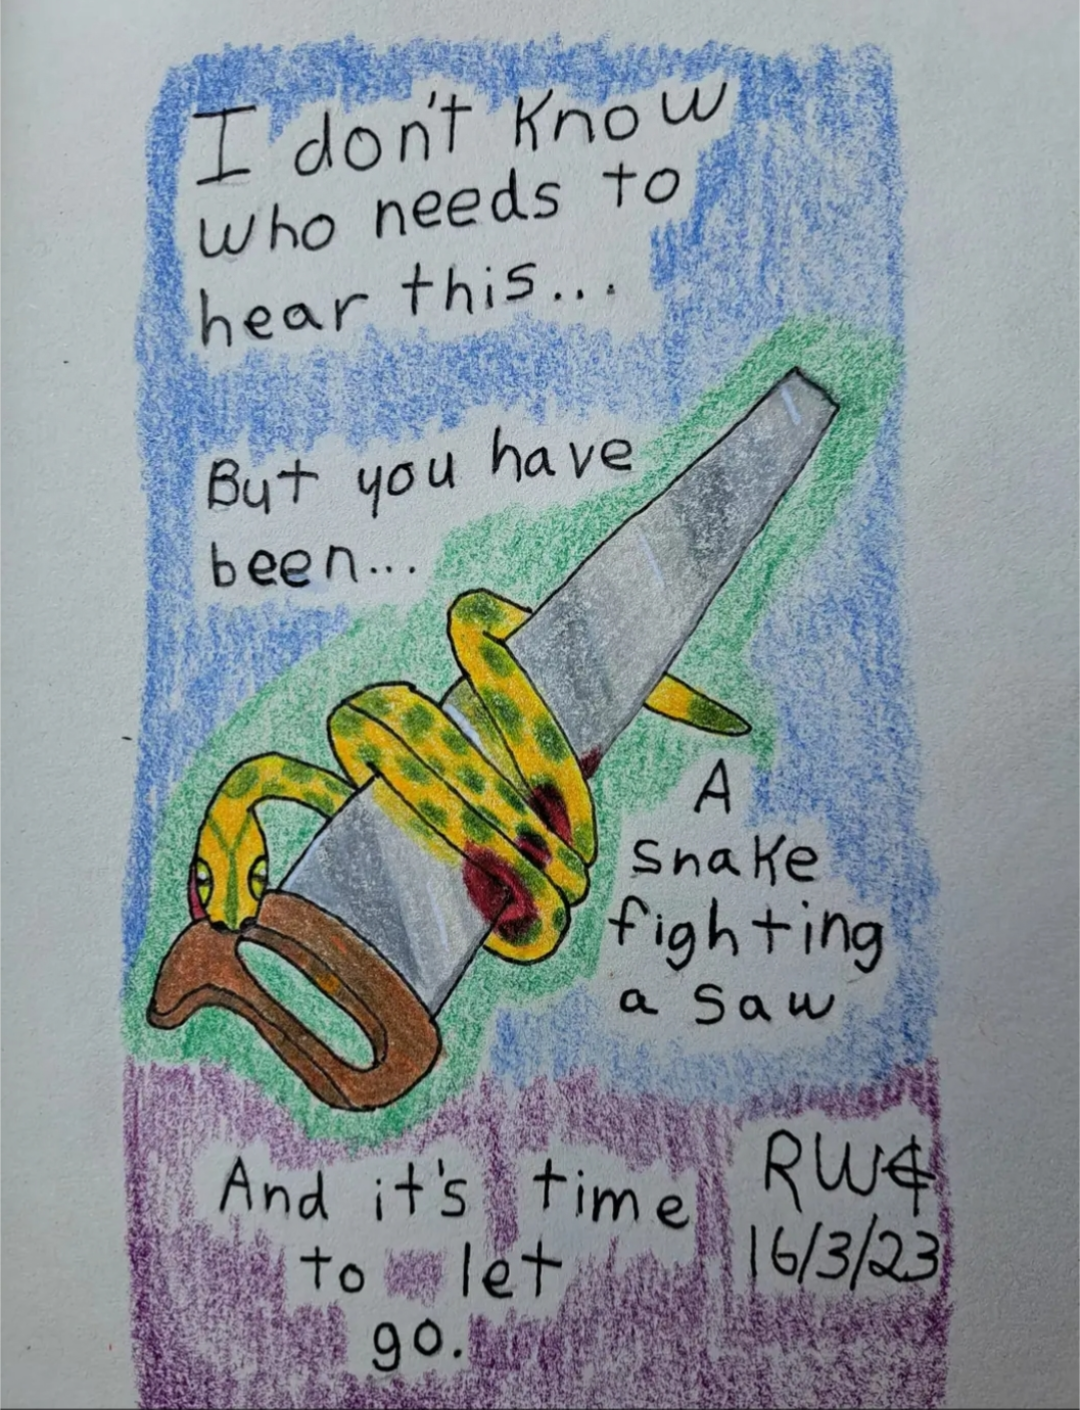 I don't know
who needs to
hear this...
But you have
been...
A
snake
fighting
a saw
And it's time
to let
go.
RW¢
16/3/23